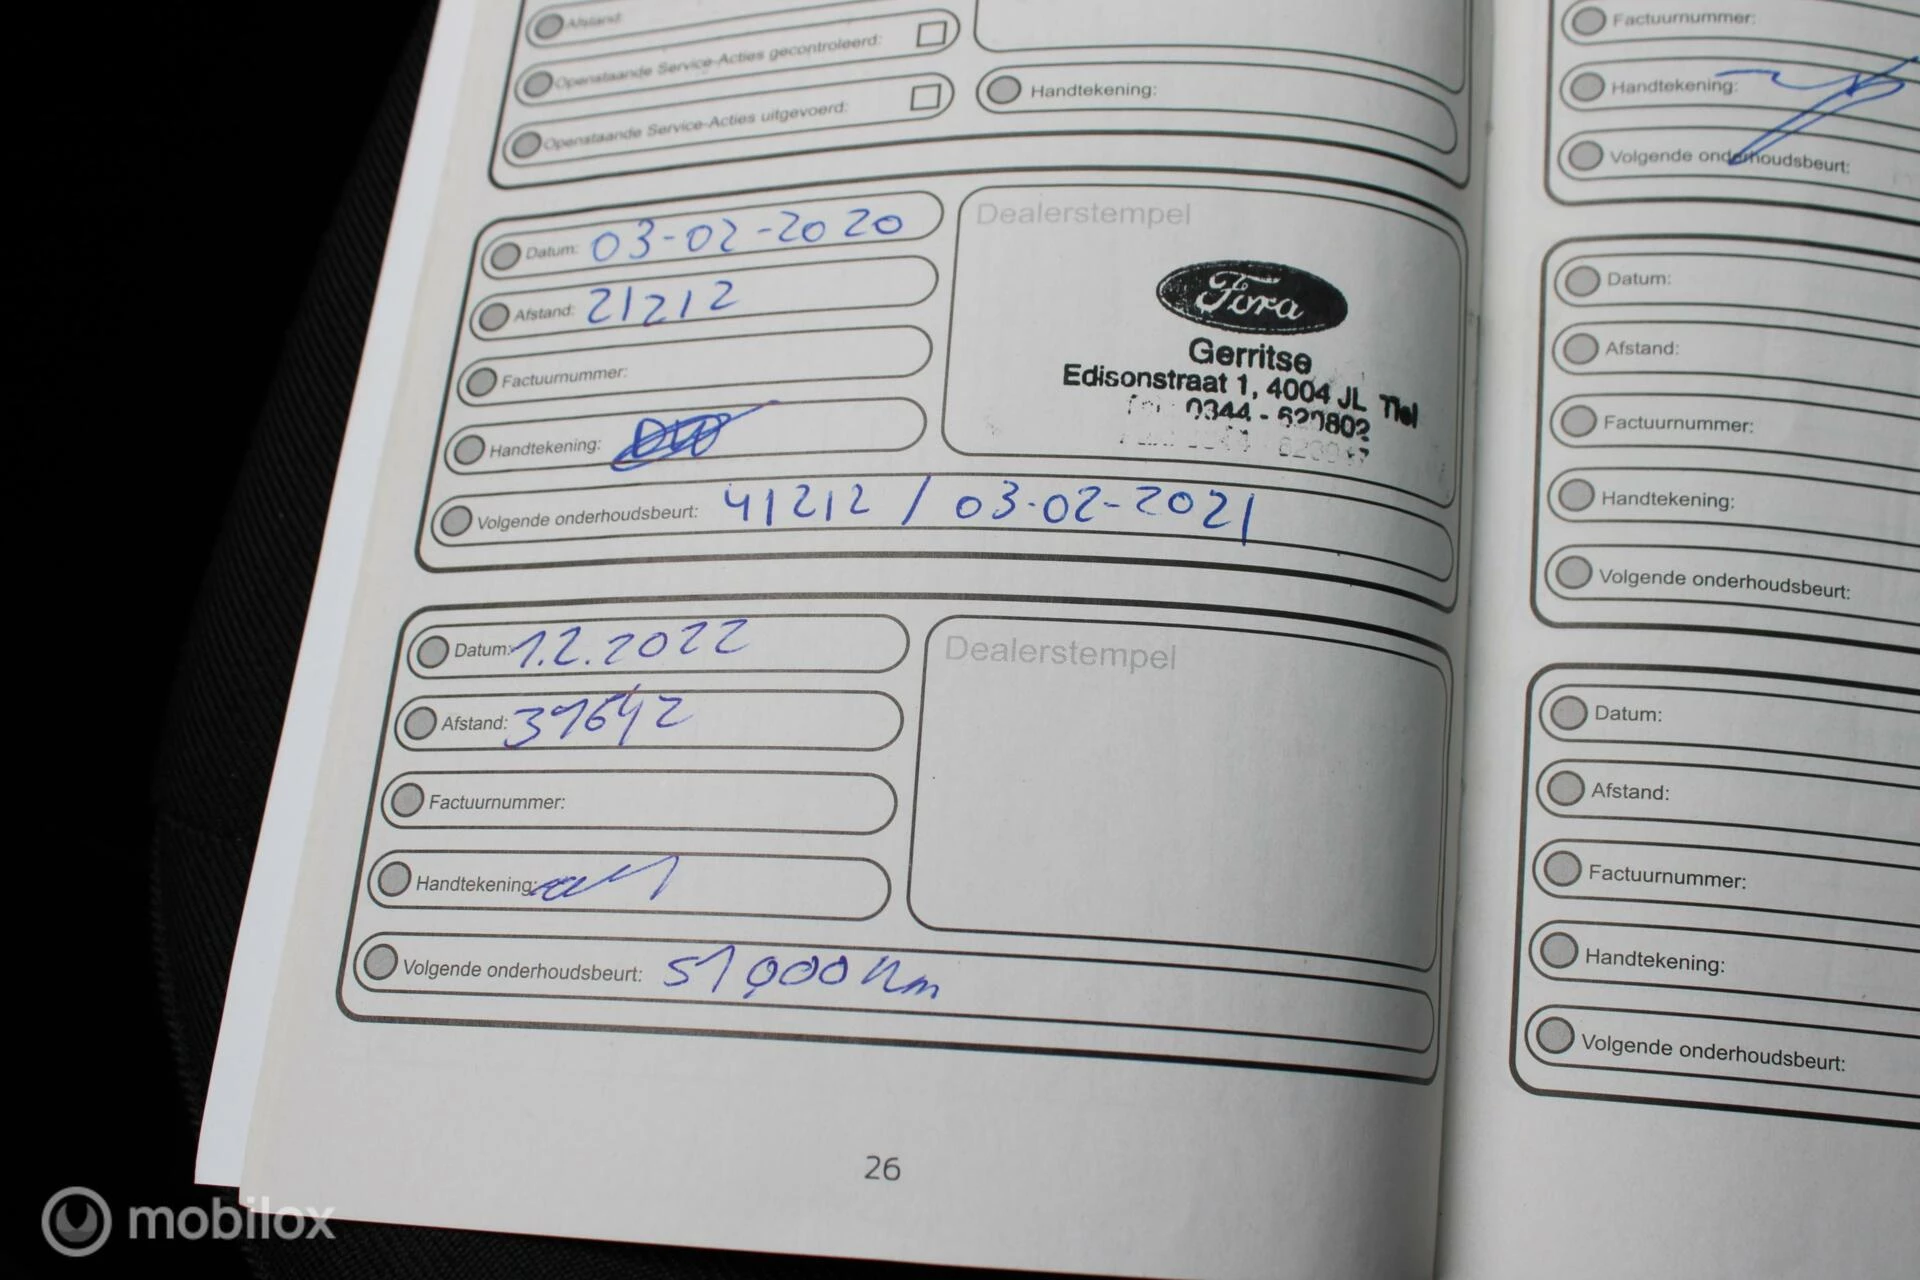 Afstand:
Openstaande Service-Acties gecontroleerd:
Openstaande Service-Acties uitgevoerd:
Handtekening:
Datum: 03-02-2020
Afstand: 21212
Factuurnummer:
Handtekening:
Volgende onderhoudsbeurt: 41212 / 03-02-2021
Dealerstempel
Ford
Gerritse
Edisonstraat 1, 4004 JL Tiel
0344 - 620802
Datum: 1.2.2022
Afstand: 31642
Factuurnummer:
Handtekening:
Volgende onderhoudsbeurt: 51000 km
Dealerstempel
26
Factuurnummer:
Handtekening:
Volgende onderhoudsbeurt:
Datum:
Afstand:
Factuurnummer:
Handtekening:
Volgende onderhoudsbeurt:
Datum:
Afstand:
Factuurnummer:
Handtekening:
Volgende onderhoudsbeurt:
mobilox